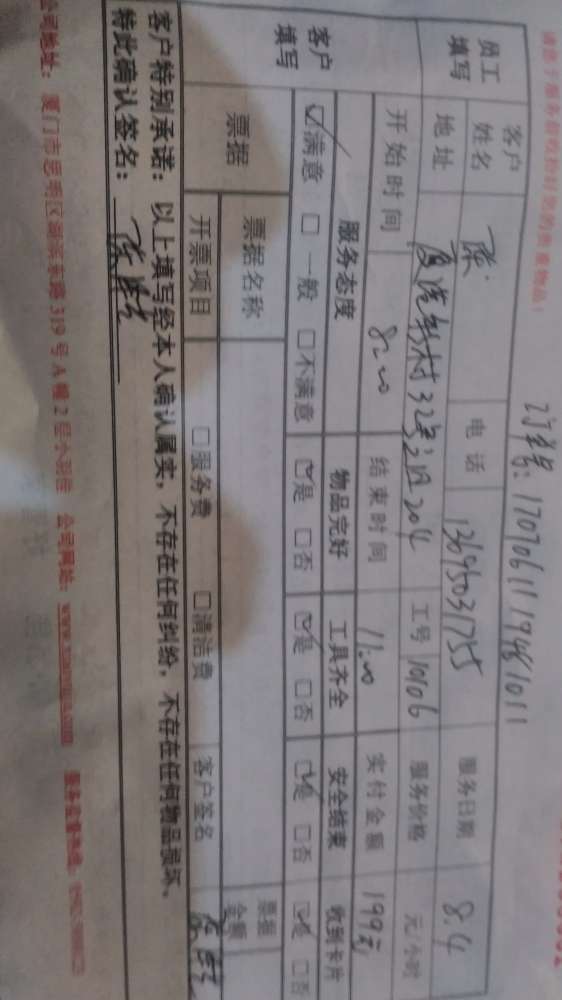 请您于服务前收拾好您的贵重物品!
订单号: 1707061119481011
员工填写 客户姓名 陈 电话 13695031755 服务日期 8.4
地址 厦汽新村32号之 204 工号 10106 服务价格 元/小时
开始时间 8:00 结束时间 11:00 实付金额 199元
客户填写 服务态度 物品完好 工具齐全 安全结束 收到卡片
☑满意 □一般 □不满意 ☑是 □否 ☑是 □否 ☑是 □否 ☑是 □否
票据 票据名称 票据金额
开票项目 □服务费 □清洁费 客户签名
客户特别承诺: 以上填写经本人确认属实, 不存在任何纠纷, 不存在任何物品损坏,
特此确认签名: 陈
公司地址: 厦门市思明区湖滨东路 319 号 A 幢 2 层 公司网站: